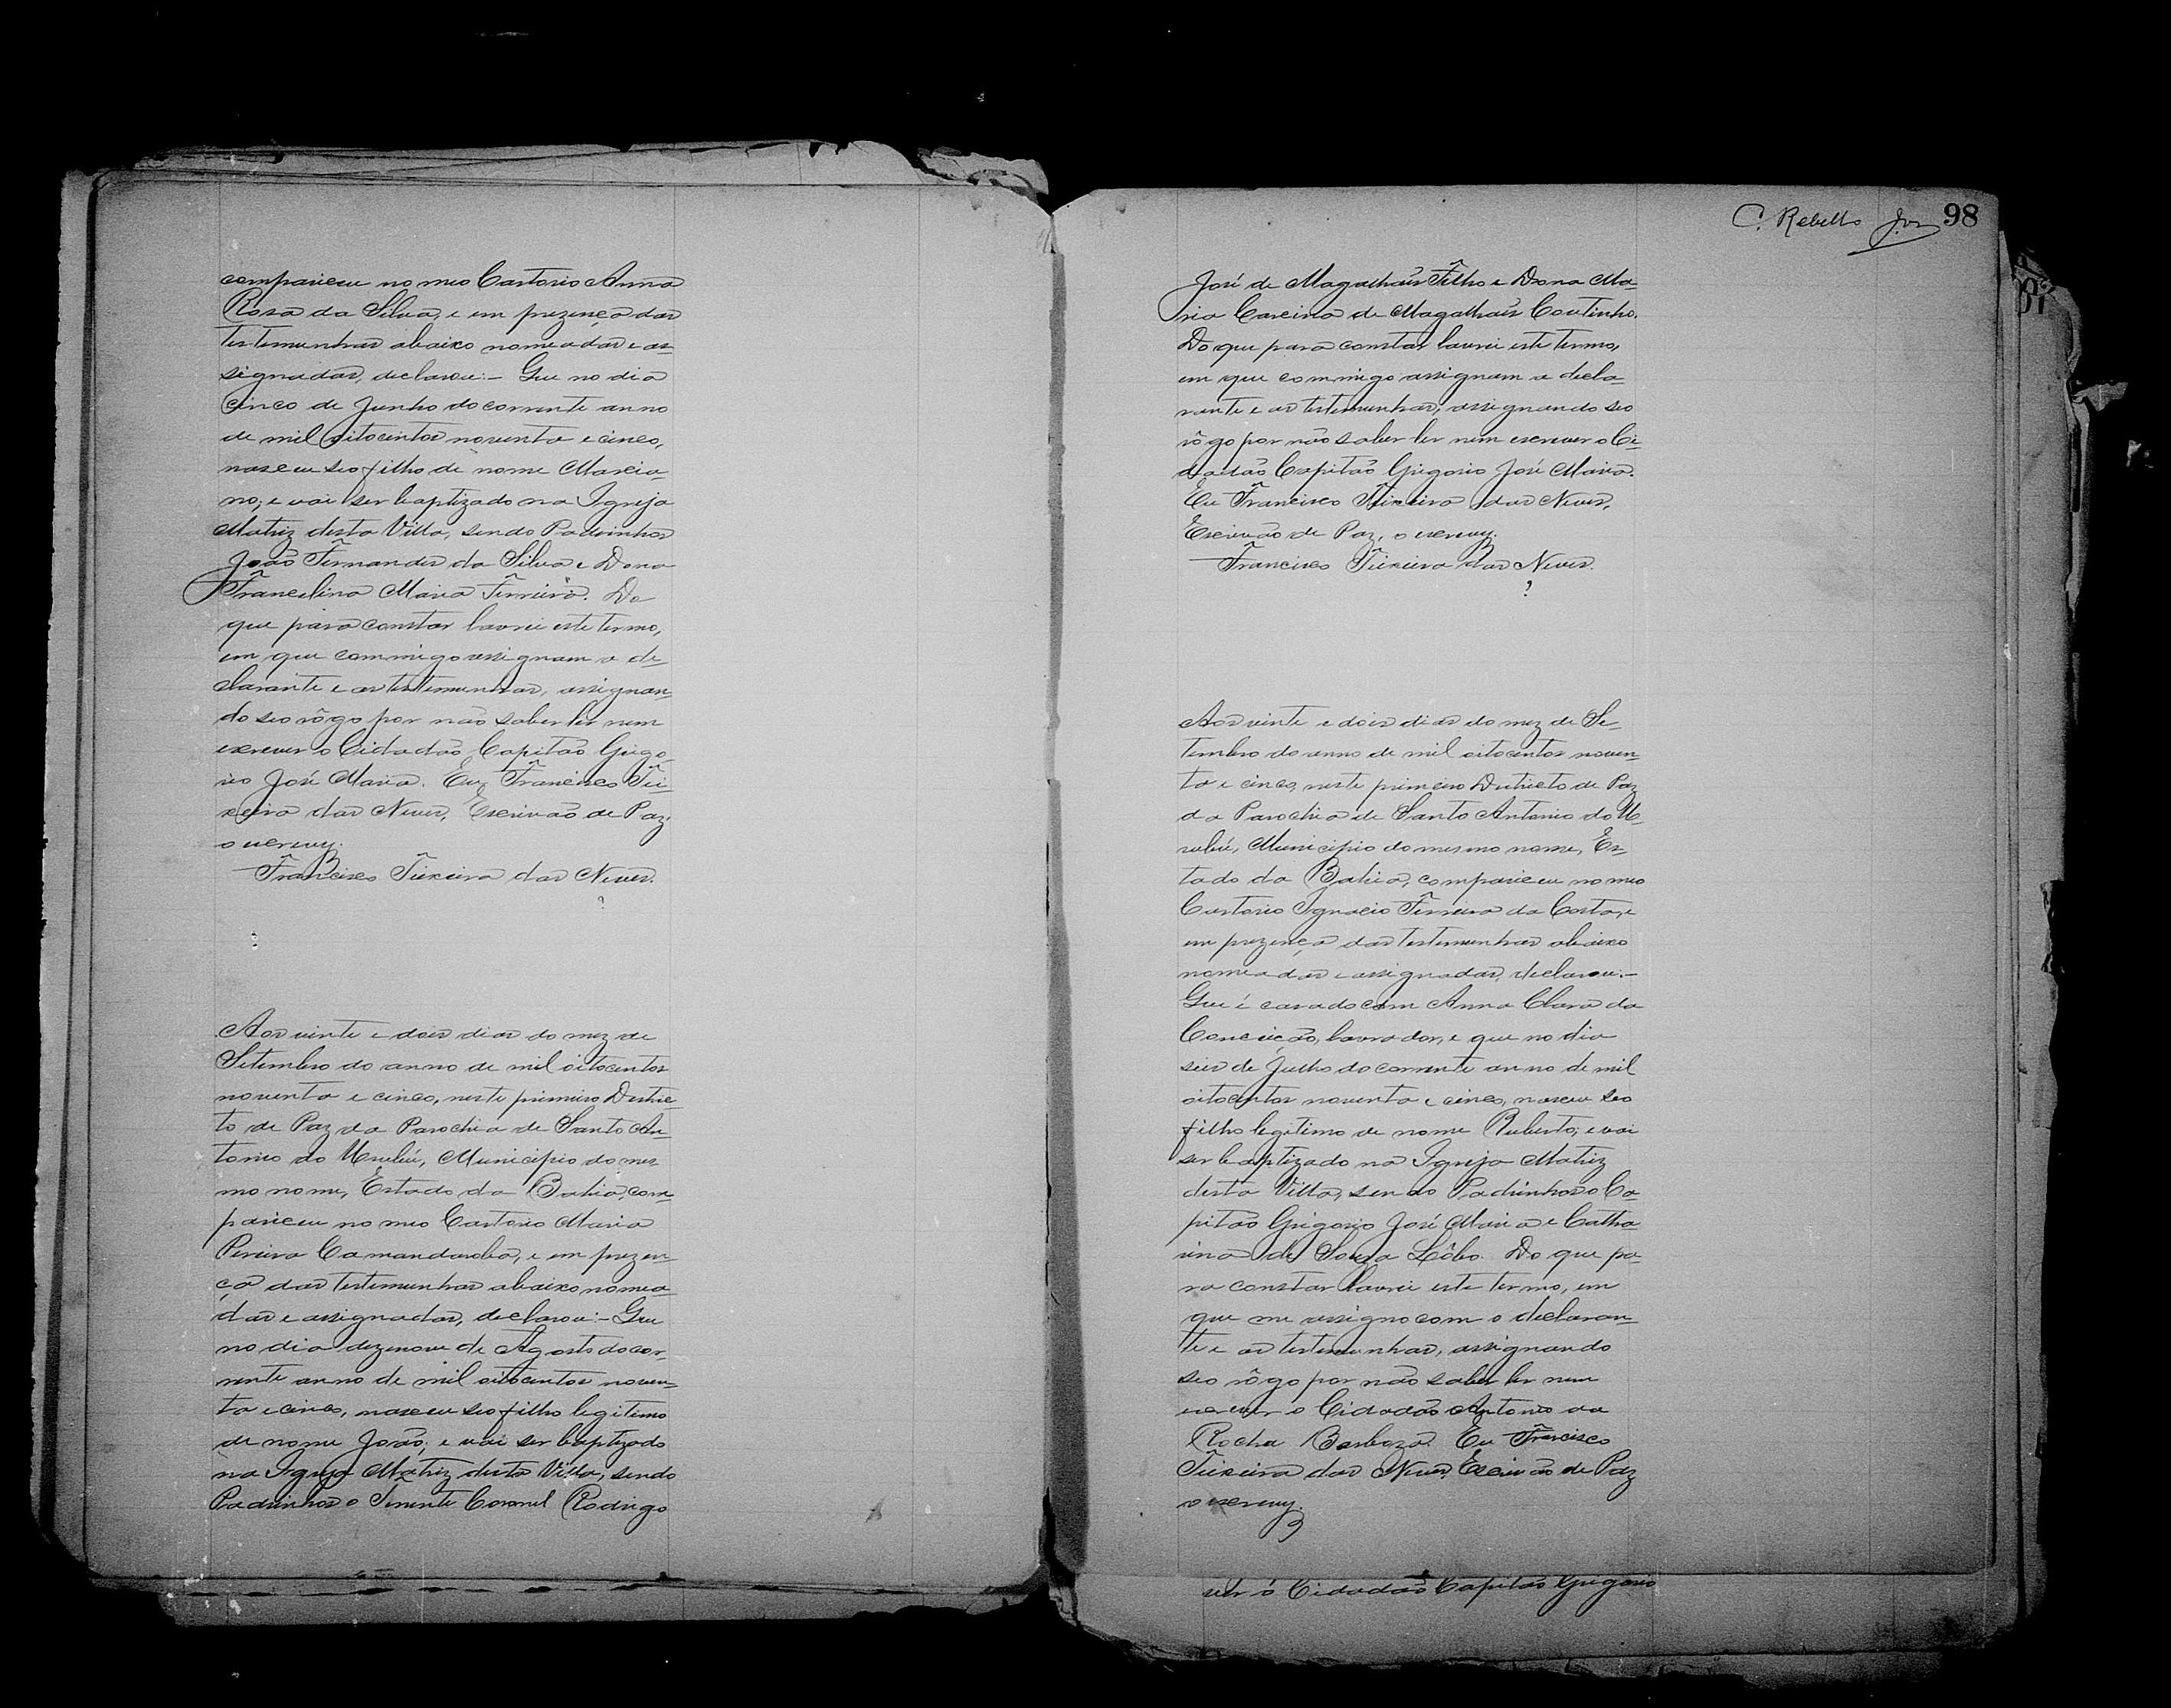 compareceu no meo Cartorio Anna
Rosa da Silva, e em prezença das
testemunhas abaixo nomeadas e as-
signadas, declarou:- Que no dia
cinco de Junho do corrente anno
de mil oitocentos noventa e cinco,
nasceu seo filho de nome Marcia-
no; e vai ser baptizado na Igreja
Matriz desta Villa, sendo Padrinhos
João Fernandes da Silva e Dona
Francelina Maria Ferreira. Do
que para constar lavrei este termo,
em que commigo assignam a de-
clarante e as testemunhas, assignan-
do seo rôgo por não saber ler nem
escrever o Cidadão Capitão Grigo-
rio José Maria. Eu, Francisco Tei-
xeira das Neves, Escrivão de Paz,
o escrevy.
Francisco Teixeira das Neves.
Aos vinte e dois dias do mez de
Setembro do anno de mil oitocentos
noventa e cinco, neste primeiro Destric-
to de Paz da Parochia de Santo An-
tonio do Urubú, Municipio do mes-
mo nome, Estado da Bahia, com-
pareceu no meo Cartorio Maria
Pereira Camandaroba, e em prezen-
ça das testemunhas abaixo nomea-
das e assignadas, declarou:- Que
no dia dezenove de Agosto do cor-
rente anno de mil oitocentos noven-
ta e cinco, nasceu seo filho legitimo
de nome João; e vai ser baptizado
na Igreja Matriz desta Villa, sendo
Padrinhos o Tenente Coronel Rodrigo
C. Rebello 98
José de Magalhães Filho e Dona Ma-
ria Carcina de Magalhães Coutinho.
Do que para constar lavrei este termo,
em que commigo assignam a decla-
rante e as testemunhas, assignando seo
rôgo por não saber ler nem escrever o Ci-
dadão Capitão Grigorio José Maria.
Eu Francisco Teixeira das Neves,
Escrivão de Paz, o escrevy.
Francisco Teixeira das Neves.
Aos vinte e dois dias do mez de Se-
tembro do anno de mil oitocentos noven-
ta e cinco, neste primeiro Districto de Paz
da Parochia de Santo Antonio do U-
rubú, Municipio do mesmo nome, Es-
tado da Bahia, compareceu no meo
Cartorio Ignacio Ferreira da Costa, e
em prezença das testemunhas abaixo
nomeadas e assignadas, declarou:-
Que é casado com Anna Clara da
Conceição, lavrador, e que no dia
seis de Julho do corrente anno de mil
oitocentos noventa e cinco, nasceu seo
filho legitimo de nome Ruberto; e vai
ser baptizado na Igreja Matriz
desta Villa, sendo Padrinhos o Ca-
pitão Grigorio José Maria e Catha-
rina de Souza Lôbo. Do que pa-
ra constar lavrei este termo, em
que me assigno com o declaran-
te e as testemunhas, assignando
seo rôgo por não saber ler nem
escrever o Cidadão Antonio da
Rocha Barboza. Eu Francisco
Teixeira das Neves, Escrivão de Paz
o escrevy.
ver o Cidadão Capitão Grigorio